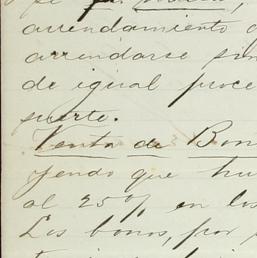 arrendamiento
arrendarse sin
de igual proce
suerte.
Venta de Bon
yendo que hu
al 25% en los
Los bonos, por